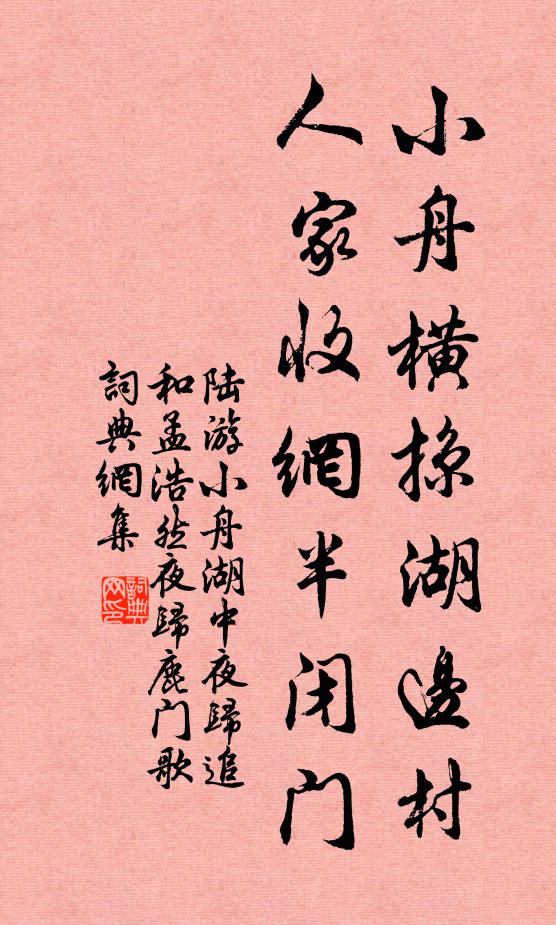 小舟橫掠湖邊村
人家收網半闭门
陆游小舟湖中夜歸追
和孟浩然夜歸鹿门歌
詞典網集
詞典
网印